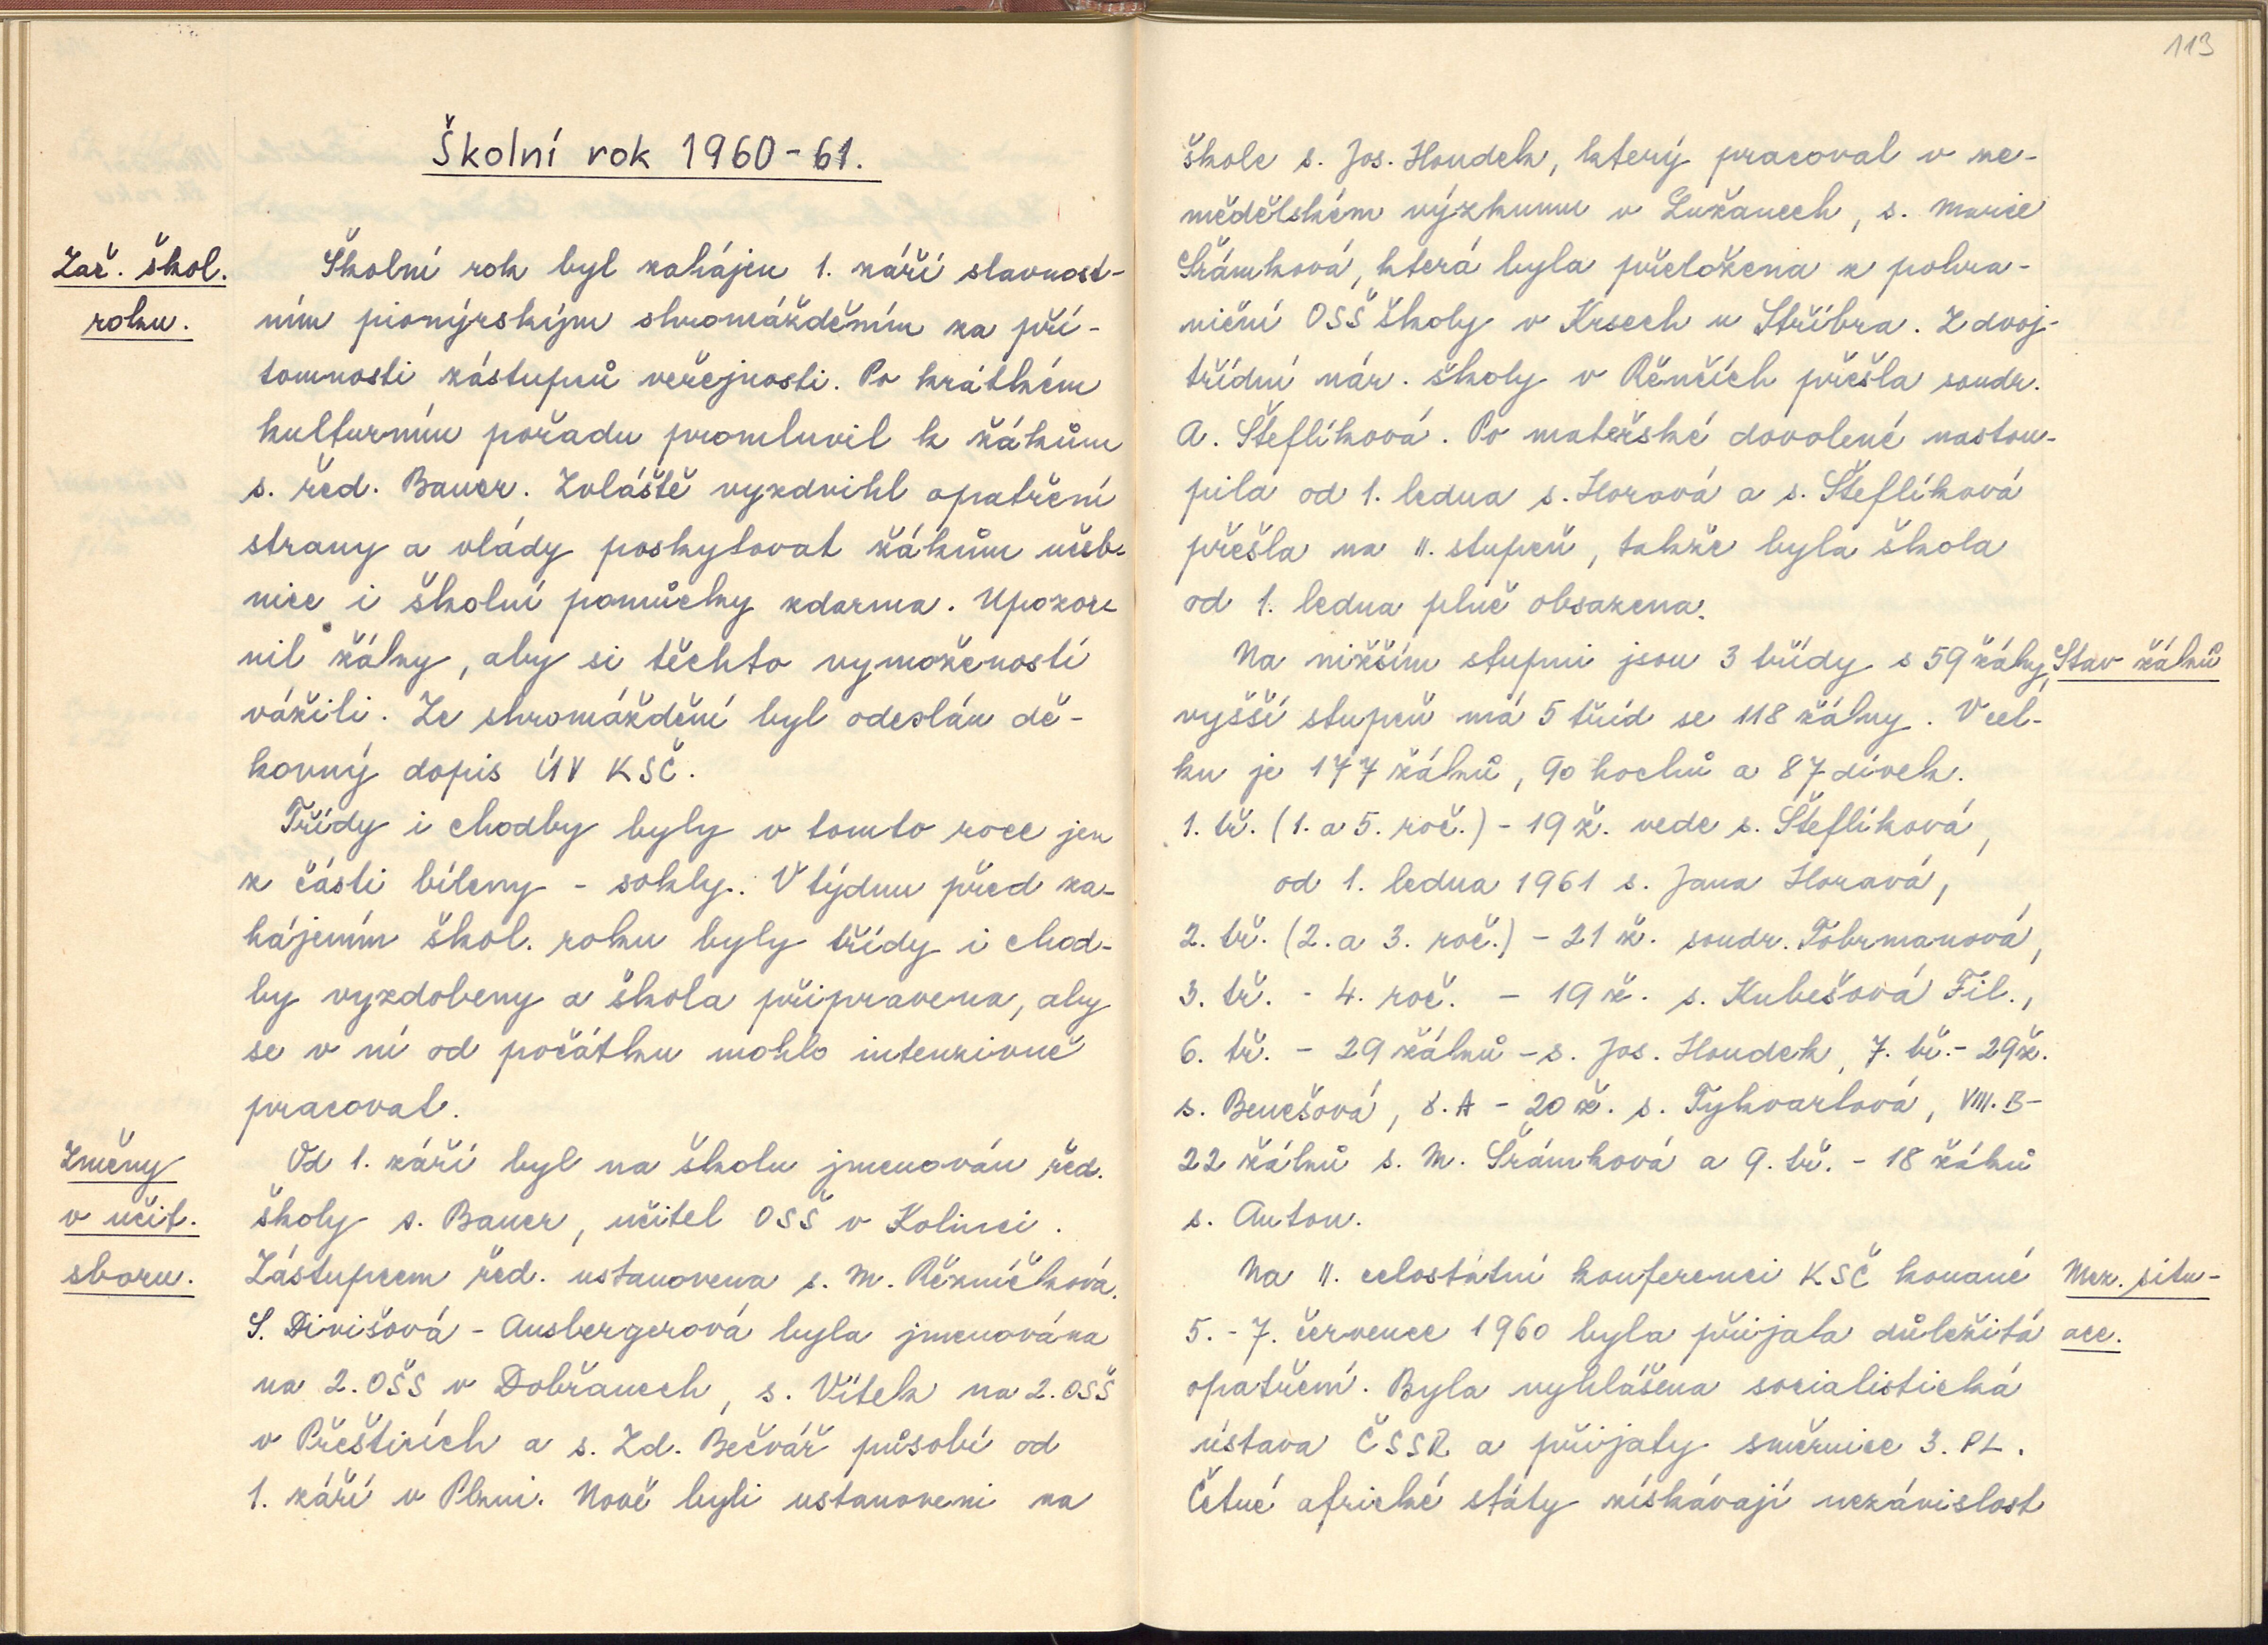 Školní rok 1960-61.
Zač. škol.
roku.
Školní rok byl zahájen 1. září slavnost-
ním pionýrským shromážděním za pří-
tomnosti zástupců veřejnosti. Po krátkém
kulturním pořadu promluvil k žákům
s. řed. Bauer. Zvláště vyzdvihl opatření
strany a vlády poskytovat žákům učeb-
nice i školní pomůcky zdarma. Upozor-
nil žáky, aby si těchto vymožeností
vážili. Ze shromáždění byl odeslán dě-
kovný dopis ÚV KSČ.
Třídy i chodby byly v tomto roce jen
z části bíleny - sokly. V týdnu před za-
hájením škol. roku byly třídy i chod-
by vyzdobeny a škola připravena, aby
se v ní od počátku mohlo intenzivně
pracovat.
Změny
v učit.
sboru.
Od 1. září byl na školu jmenován řed.
školy s. Bauer, učitel OSŠ v Kolinci.
Zástupcem řed. ustanovena s. M. Řezníčková.
S. Divišová - Ausbergerová byla jmenována
na 2. OŠS v Dobřanech, s. Vítek na 2. OSŠ
v Přešticích a s. Zd. Bečvář působí od
1. září v Plzni. Nově byli ustanoveni na
113
škole s. Jos. Houdek, který pracoval v ze-
mědělském výzkumu v Lužanech, s. Marie
Šrámková, která byla přeložena z pohra-
niční OSŠ školy v Krsech u Stříbra. Z dvoj-
třídní nár. školy v Řenčích přešla soudr.
A. Šteflíková. Po mateřské dovolené nastou-
pila od 1. ledna s. Horová a s. Šteflíková
přešla na II. stupeň, takže byla škola
od 1. ledna plně obsazena.
Na nižším stupni jsou 3 třídy s 59 žáky,
Stav žáků
vyšší stupeň má 5 tříd se 118 žáky. V cel-
ku je 177 žáků, 90 hochů a 87 dívek.
1. tř. (1. a 5. roč.) - 19 ž. vede s. Šteflíková,
od 1. ledna 1961 s. Jana Horavá,
2. tř. (2. a 3. roč.) - 21 ž. soudr. Tobrmanová,
3. tř. - 4. roč. - 19 ž. s. Kubešová Fil.,
6. tř. - 29 žáků - s. Jos. Houdek, 7. tř. - 29 ž.
s. Benešová, 8. A - 20 ž. s. Tykvartová, VIII. B-
22 žáků s. M. Šrámková a 9. tř. - 18 žáků
s. Anton.
Na II. celostátní konferenci KSČ konané
Mez. situ-
ace.
5. - 7. července 1960 byla přijata důležitá
opatření. Byla vyhlášena socialistická
ústava ČSSR a přijaty směrnice 3. PL.
Četné africké státy získávají nezávislost